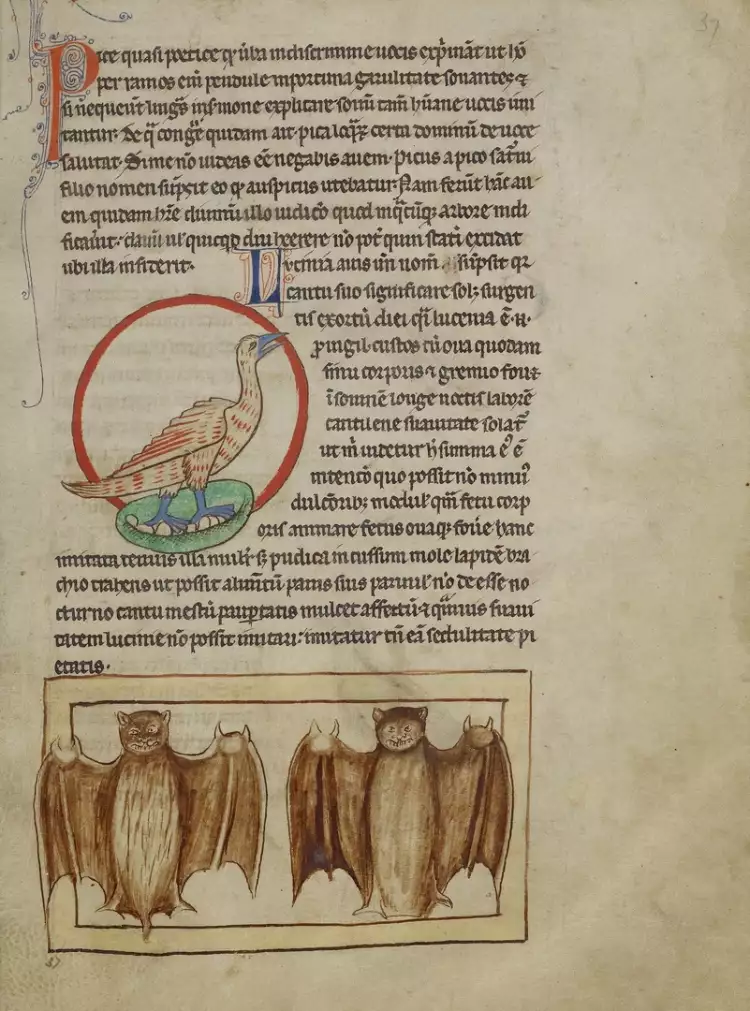 37
Pice quasi poetice qr̃ uba in discrimine uocis exp̃mãt ut hõ
per ramos eni᷑ pendule inportuna garulitate sonantes ⁊
si neq̃unt linguas in s̃mone explicare sonũ tam̃ hũane uocis imi
tantur. De q̃ congr̃e quidam ait. pica loq̃x certa dominũ de uoce
salutat. Si me nõ uideas eẽ negabis auem. Picus a pico sat̾ni
filio nomen sũpsit eo q̃ auspiciis utebatur. Nam ferũt hãc au-
em quidam hr̃e diuinũ illo iudicõ quod in q̃cũq̃ arbore nidi
ficaũit. clauũ ul̾ quicq̃d diu herere nõ pot̾ quin stati᷑ excidat
ubi illa insiderit. Lucinia auis in̄ nom̃ sũpsit qr̾
cantu suo significare sol; surgen
tis exortũ diei q̃i lucenia ẽ. H.
ꝑuigil custos cũ oua quodam
sinu corporis ⁊ gremio fouet
ĩsomnẽ longe noctis laborẽ
cantilene suauitate solat̾
ut m̃ uidetur h̾ summa ei᷒ ẽ
intencõ quo possit nõ minus
dulcorib; modul̾ q̃m fetu corp
oris animare fetus ouaq; fouẽ hanc
imitata tenuis illa mulier s; pudica incussum mole lapidẽ bra-
chio trahens ut possit alimtũm panis suis paruul̾ nõ de esse no
cturno cantu mestũ paup̃tatis mulcet affectũ ⁊ q̃muis suaui
tatem lucinie nõ possit imitari: imitatur tñ eã sedulitate pi
etatis.
37